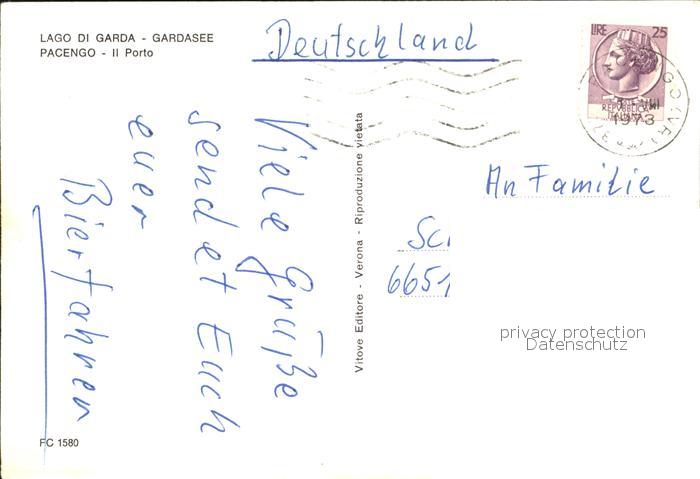 LAGO DI GARDA - GARDASEE
PACENGO - Il Porto
Deutschland
LIRE 25
REPUBBLICA
ITALIANA
1973
Viele Grüße
sendet Euch
euer
Bierfahrer
Vitove Editore - Verona - Riproduzione vietata
An Familie
6651
privacy protection
Datenschutz
FC 1580